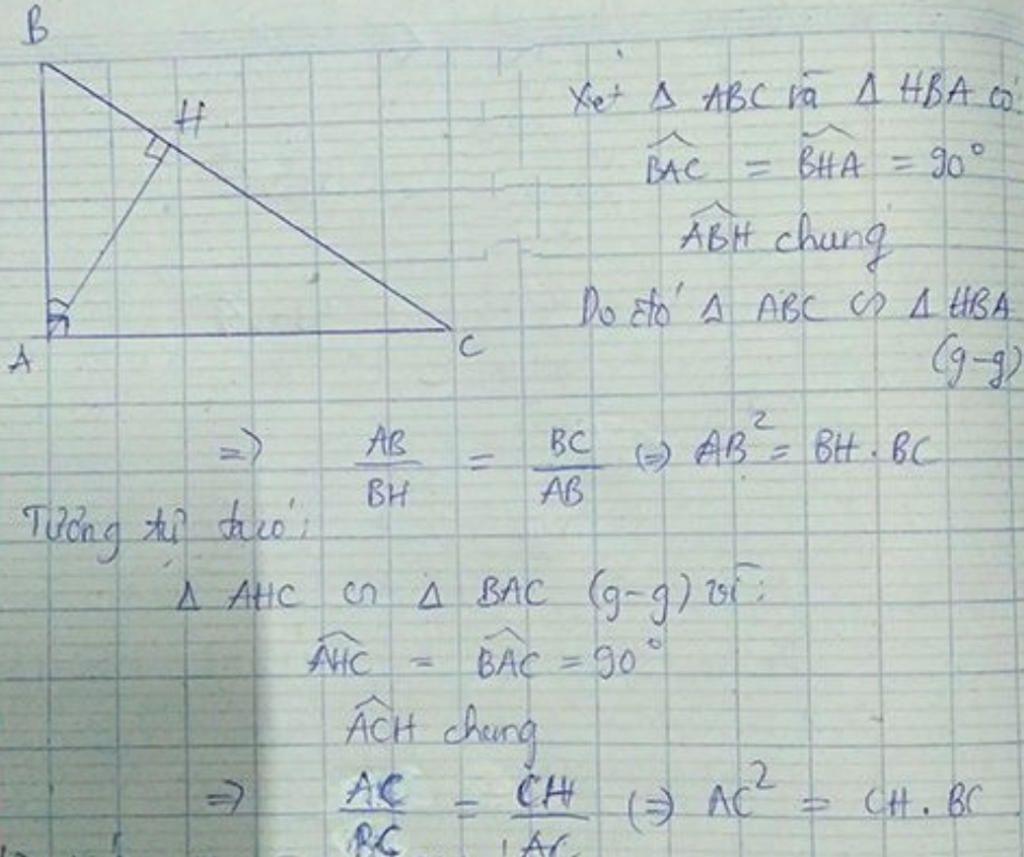 B
H
A
C
Xét Δ ABC và Δ HBA có
\widehat{BAC} = \widehat{BHA} = 90°
\widehat{ABH} chung
Do đó Δ ABC ∽ Δ HBA
(g-g)
=> AB/BH = BC/AB (=) AB² = BH . BC
Tương tự ta có:
Δ AHC ∽ Δ BAC (g-g) vì:
\widehat{AHC} = \widehat{BAC} = 90°
\widehat{ACH} chung
=> AC/BC = CH/AC (=) AC² = CH . BC